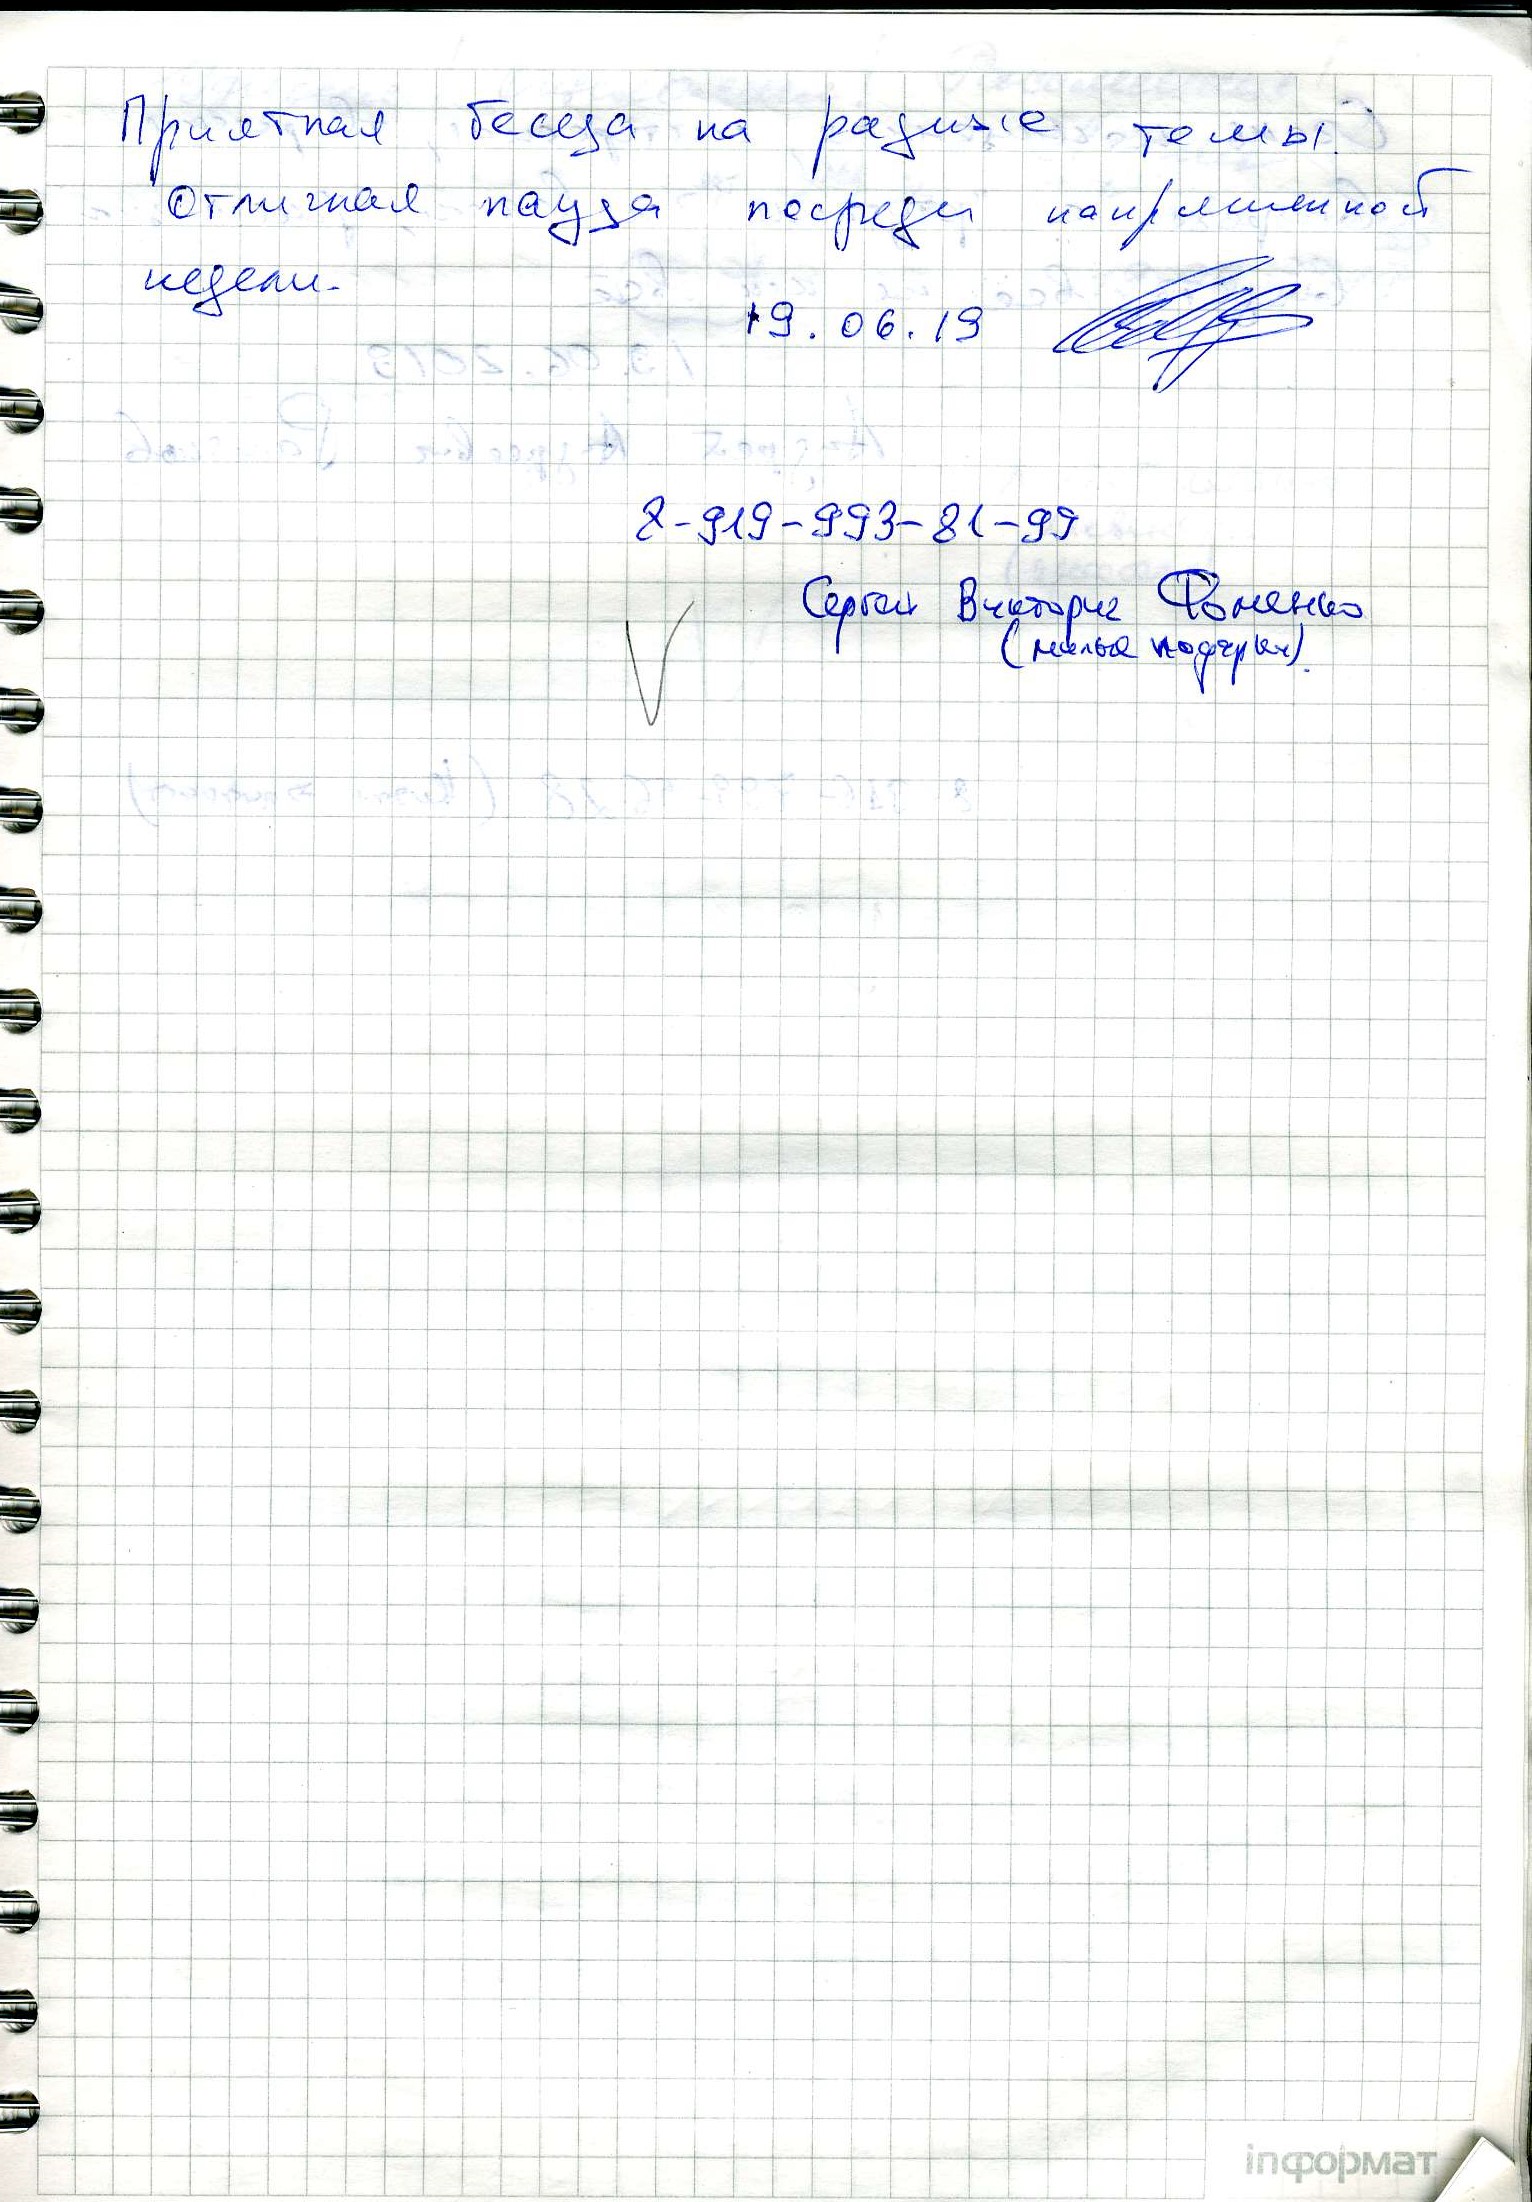 Приятная беседа на разные темы.
Отличная пауза посреди напряженной
недели.
19.06.19
8-919-993-81-99
Сергей Викторич Фоменко
(милые
информат